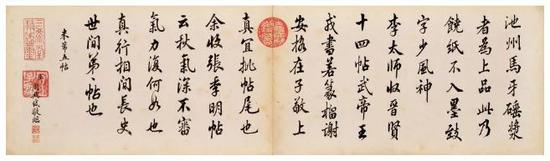 池州馬牙硾漿
者為上品此乃
饒紙不入墨致
字少風神
李太師收晉賢
十四帖武帝王
戎書若篆籀謝
安格在子敬上
真宜批帖尾也
余收張季明帖
云秋氣深不審
氣力復何如也
真行相間長史
世間第一帖也
米第五帖
敬臨